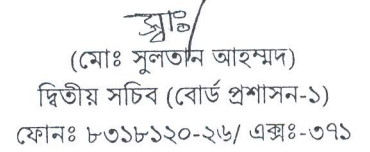 স্বাঃ/
(মোঃ সুলতান আহম্মদ)
দ্বিতীয় সচিব (বোর্ড প্রশাসন-১)
ফোনঃ ৮৩১৮১২০-২৬/ এক্সঃ-৩৭১